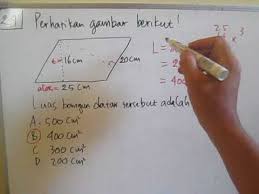 21
Perhatikan gambar berikut!
t=16cm
20cm
alas = 25 cm
L =
= 2
= 400
25
x 3
Luas bangun datar tersebut adalah
A. 500 cm²
B. 400 cm²
C. 300 cm²
D. 200 cm²